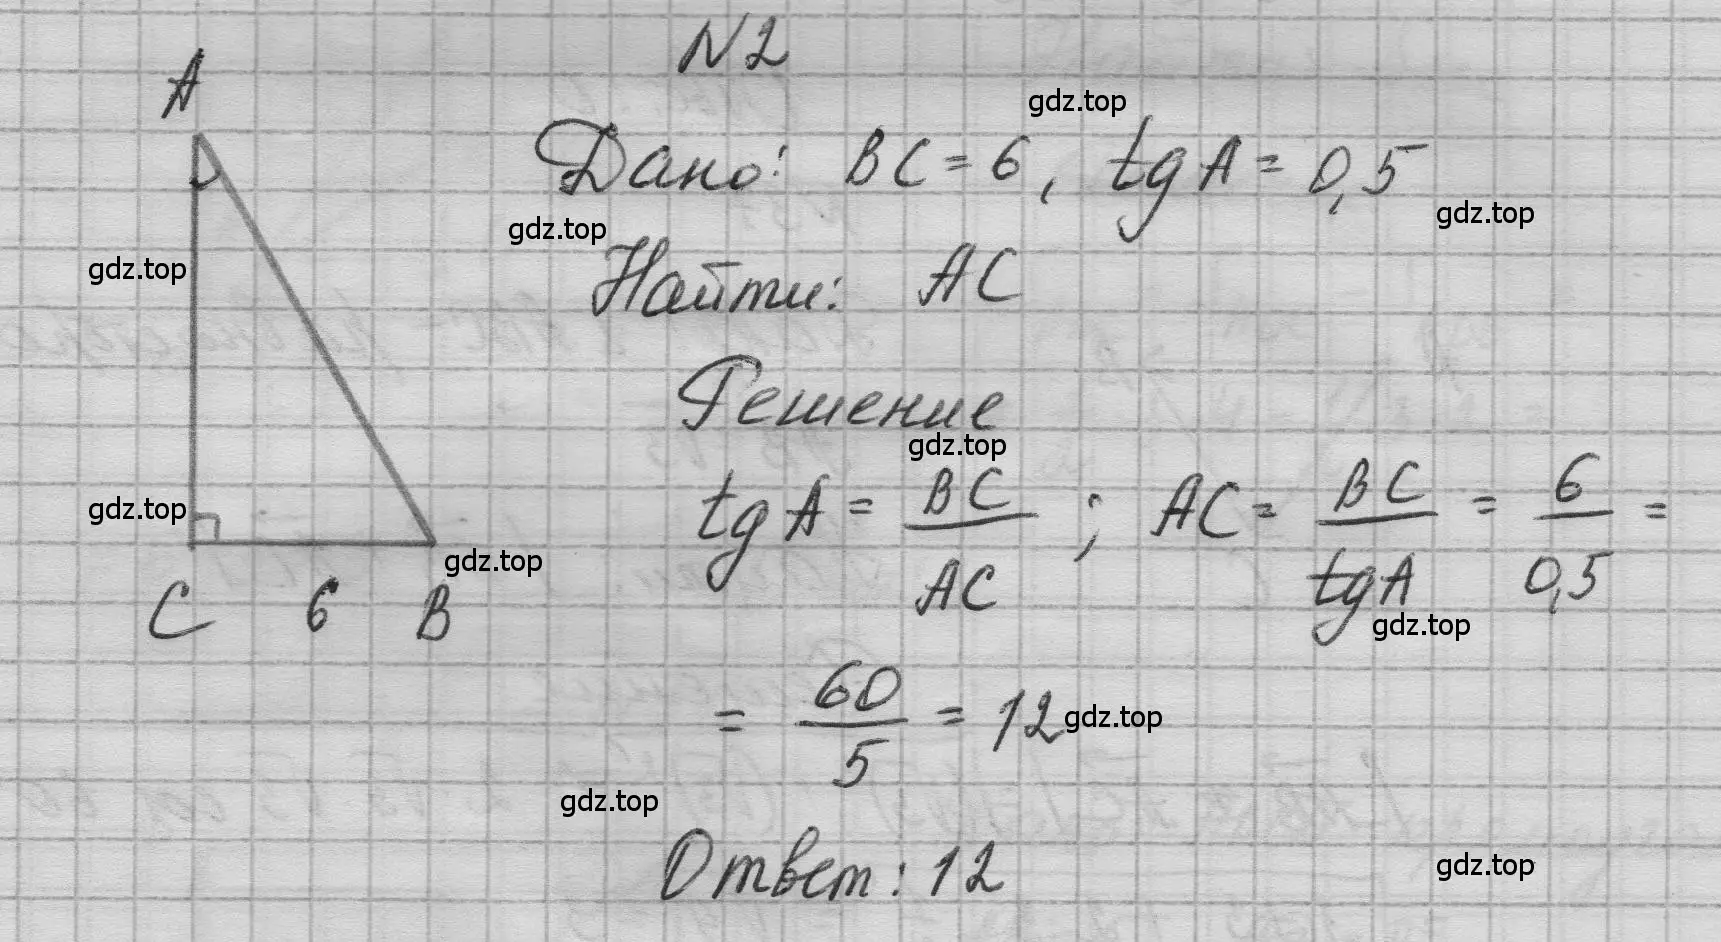 N2
A
gdz.top
Дано: BC = 6, tg A = 0,5
gdz.top
gdz.top
Найти: AC
gdz.top
Решение
gdz.top
tg A = BC / AC ; AC = BC / tg A = 6 / 0,5 =
gdz.top
gdz.top
C 6 B
gdz.top
= 60 / 5 = 12
gdz.top
gdz.top
Ответ: 12
gdz.top